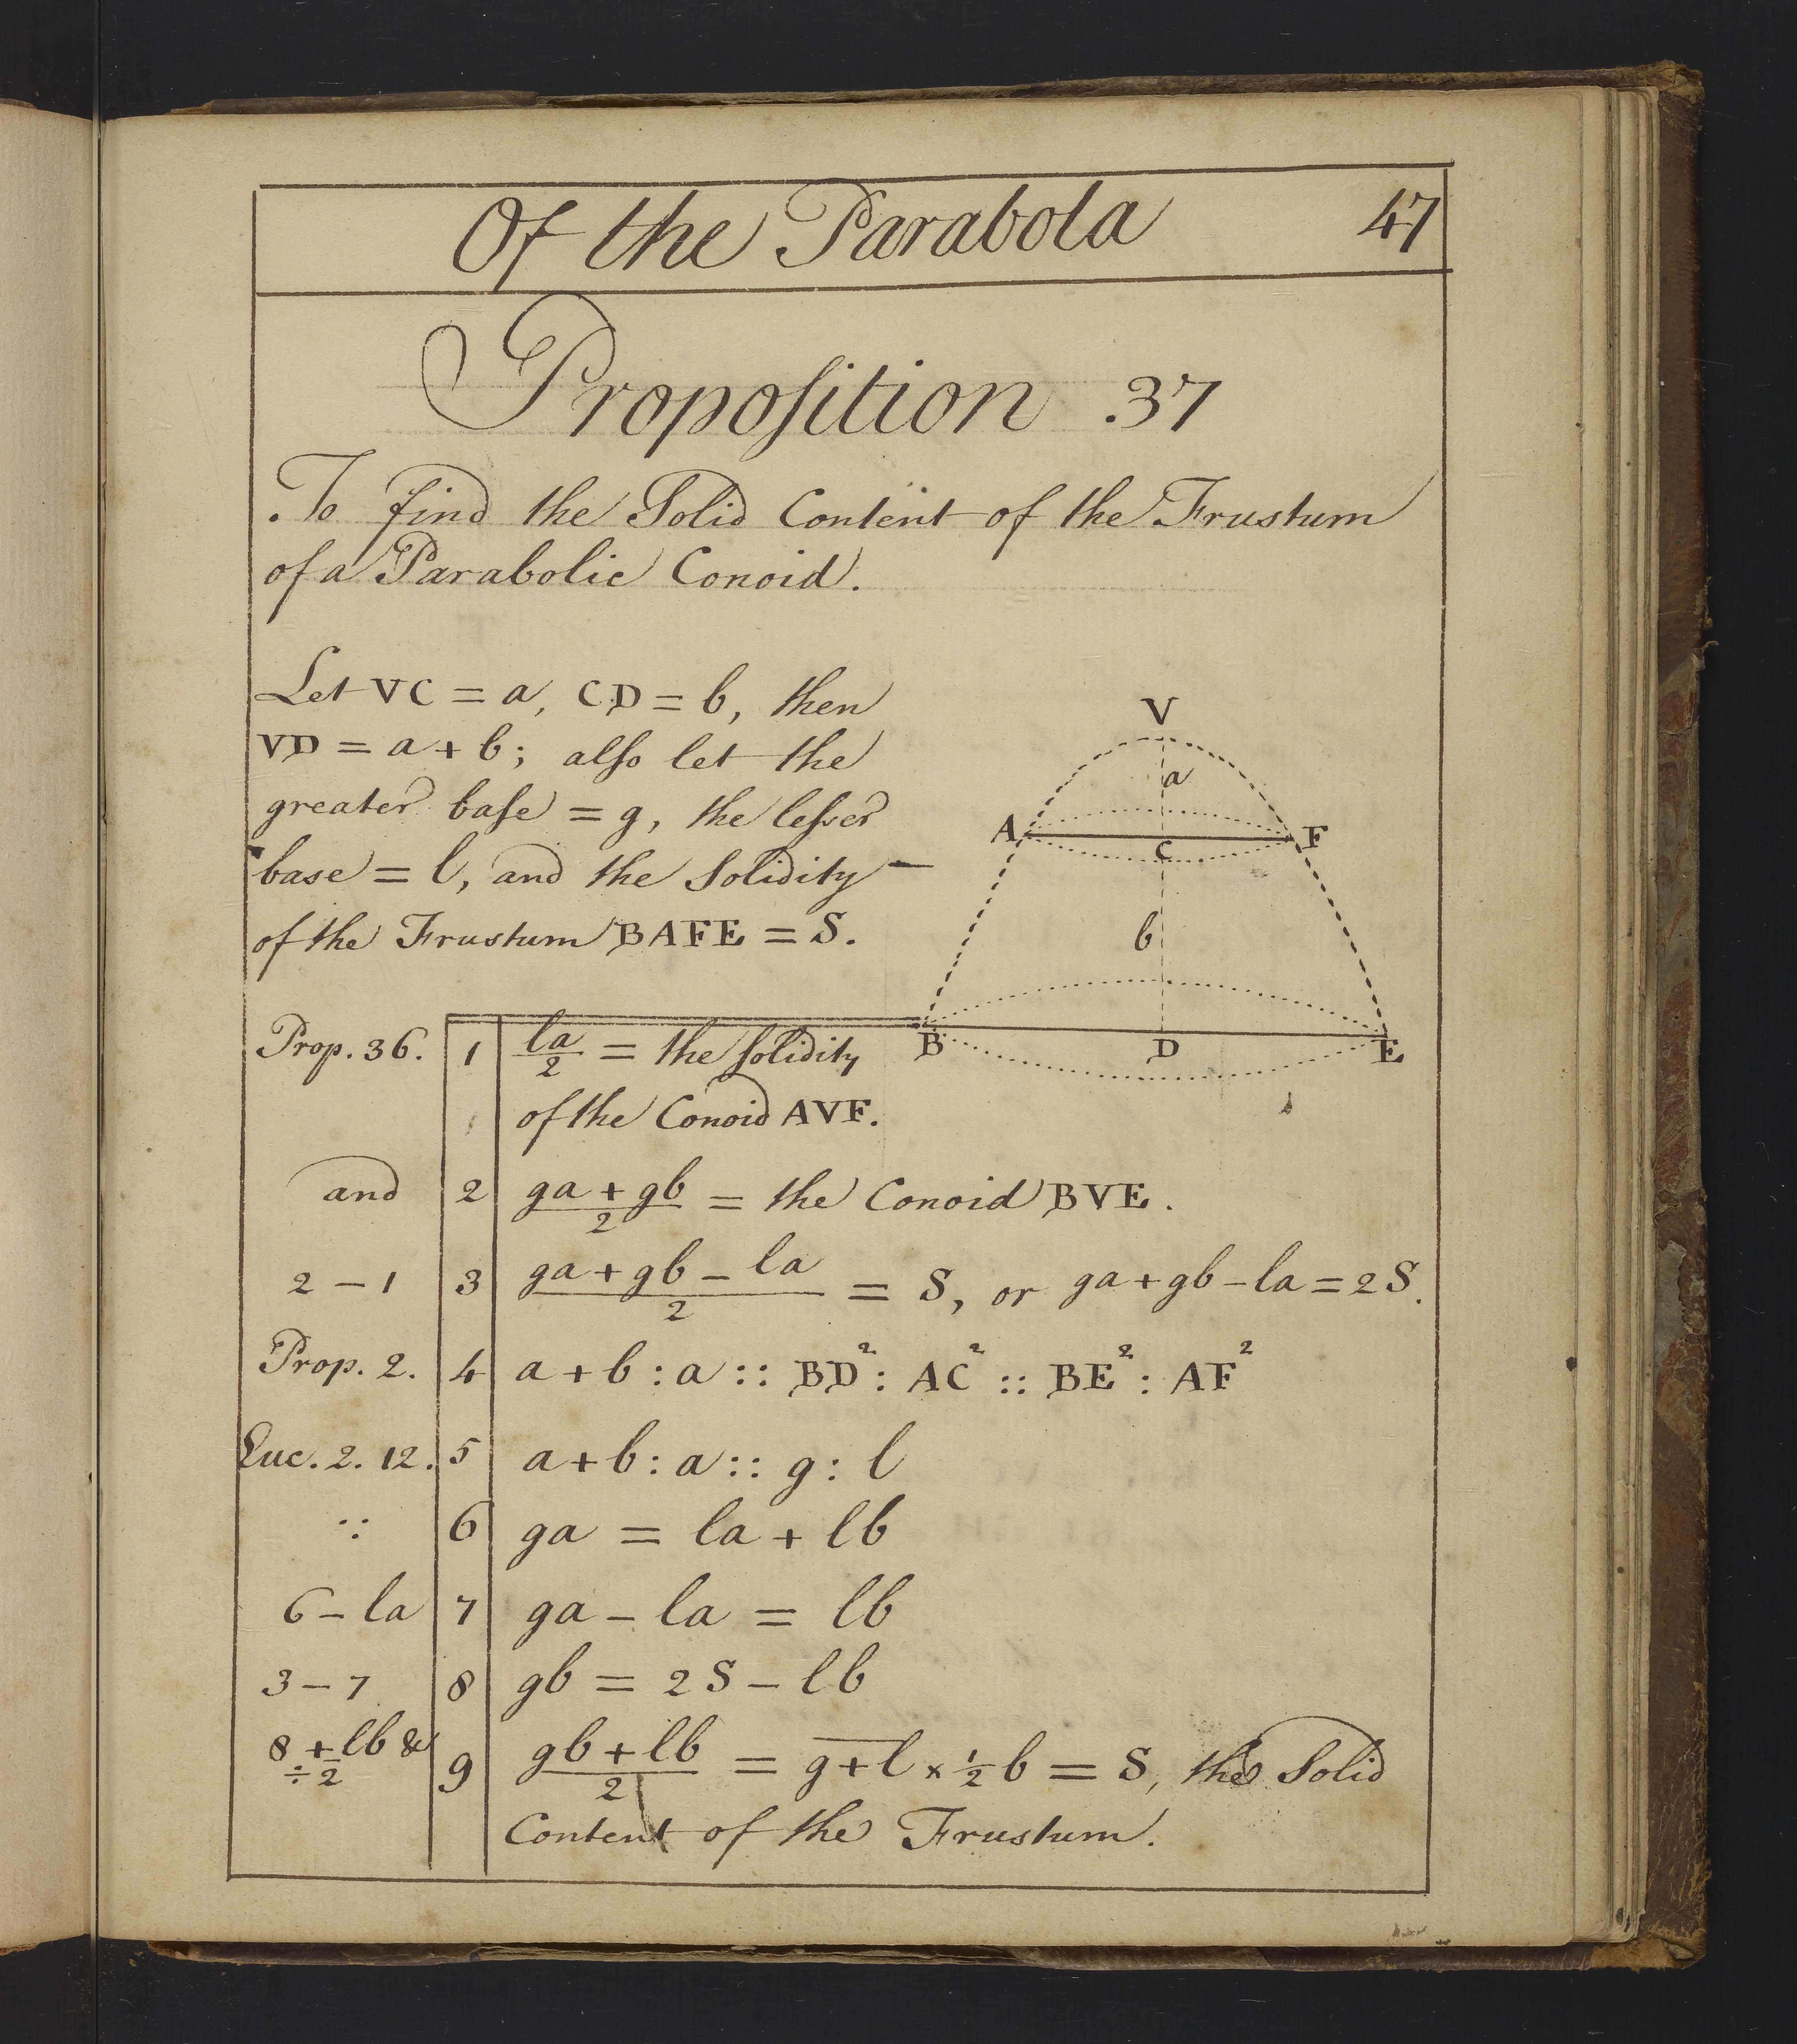 Of the Parabola 47
Proposition .37
.To find the Solid Content of the Frustum
of a Parabolic Conoid.
Let VC = a, CD = b, then
VD = a + b; also let the
greater base = g, the lesser
base = l, and the Solidity —
of the Frustum BAFE = S.
V
a
A C F
b
B D E
Prop. 36. 1 la/2 = the solidity
of the Conoid AVF.
and 2 (ga + gb)/2 = the Conoid BVE.
2 – 1 3 (ga + gb – la)/2 = S, or ga + gb – la = 2S.
Prop. 2. 4 a + b : a :: BD² : AC² :: BE² : AF²
Euc. 2. 12. 5 a + b : a :: g : l
∵ 6 ga = la + lb
6 – la 7 ga – la = lb
3 – 7 8 gb = 2S – lb
8 + lb &
÷ 2 9 (gb + lb)/2 = g̅ ̅+̅ ̅l̅ × ½ b = S, the Solid
Content of the Frustum.